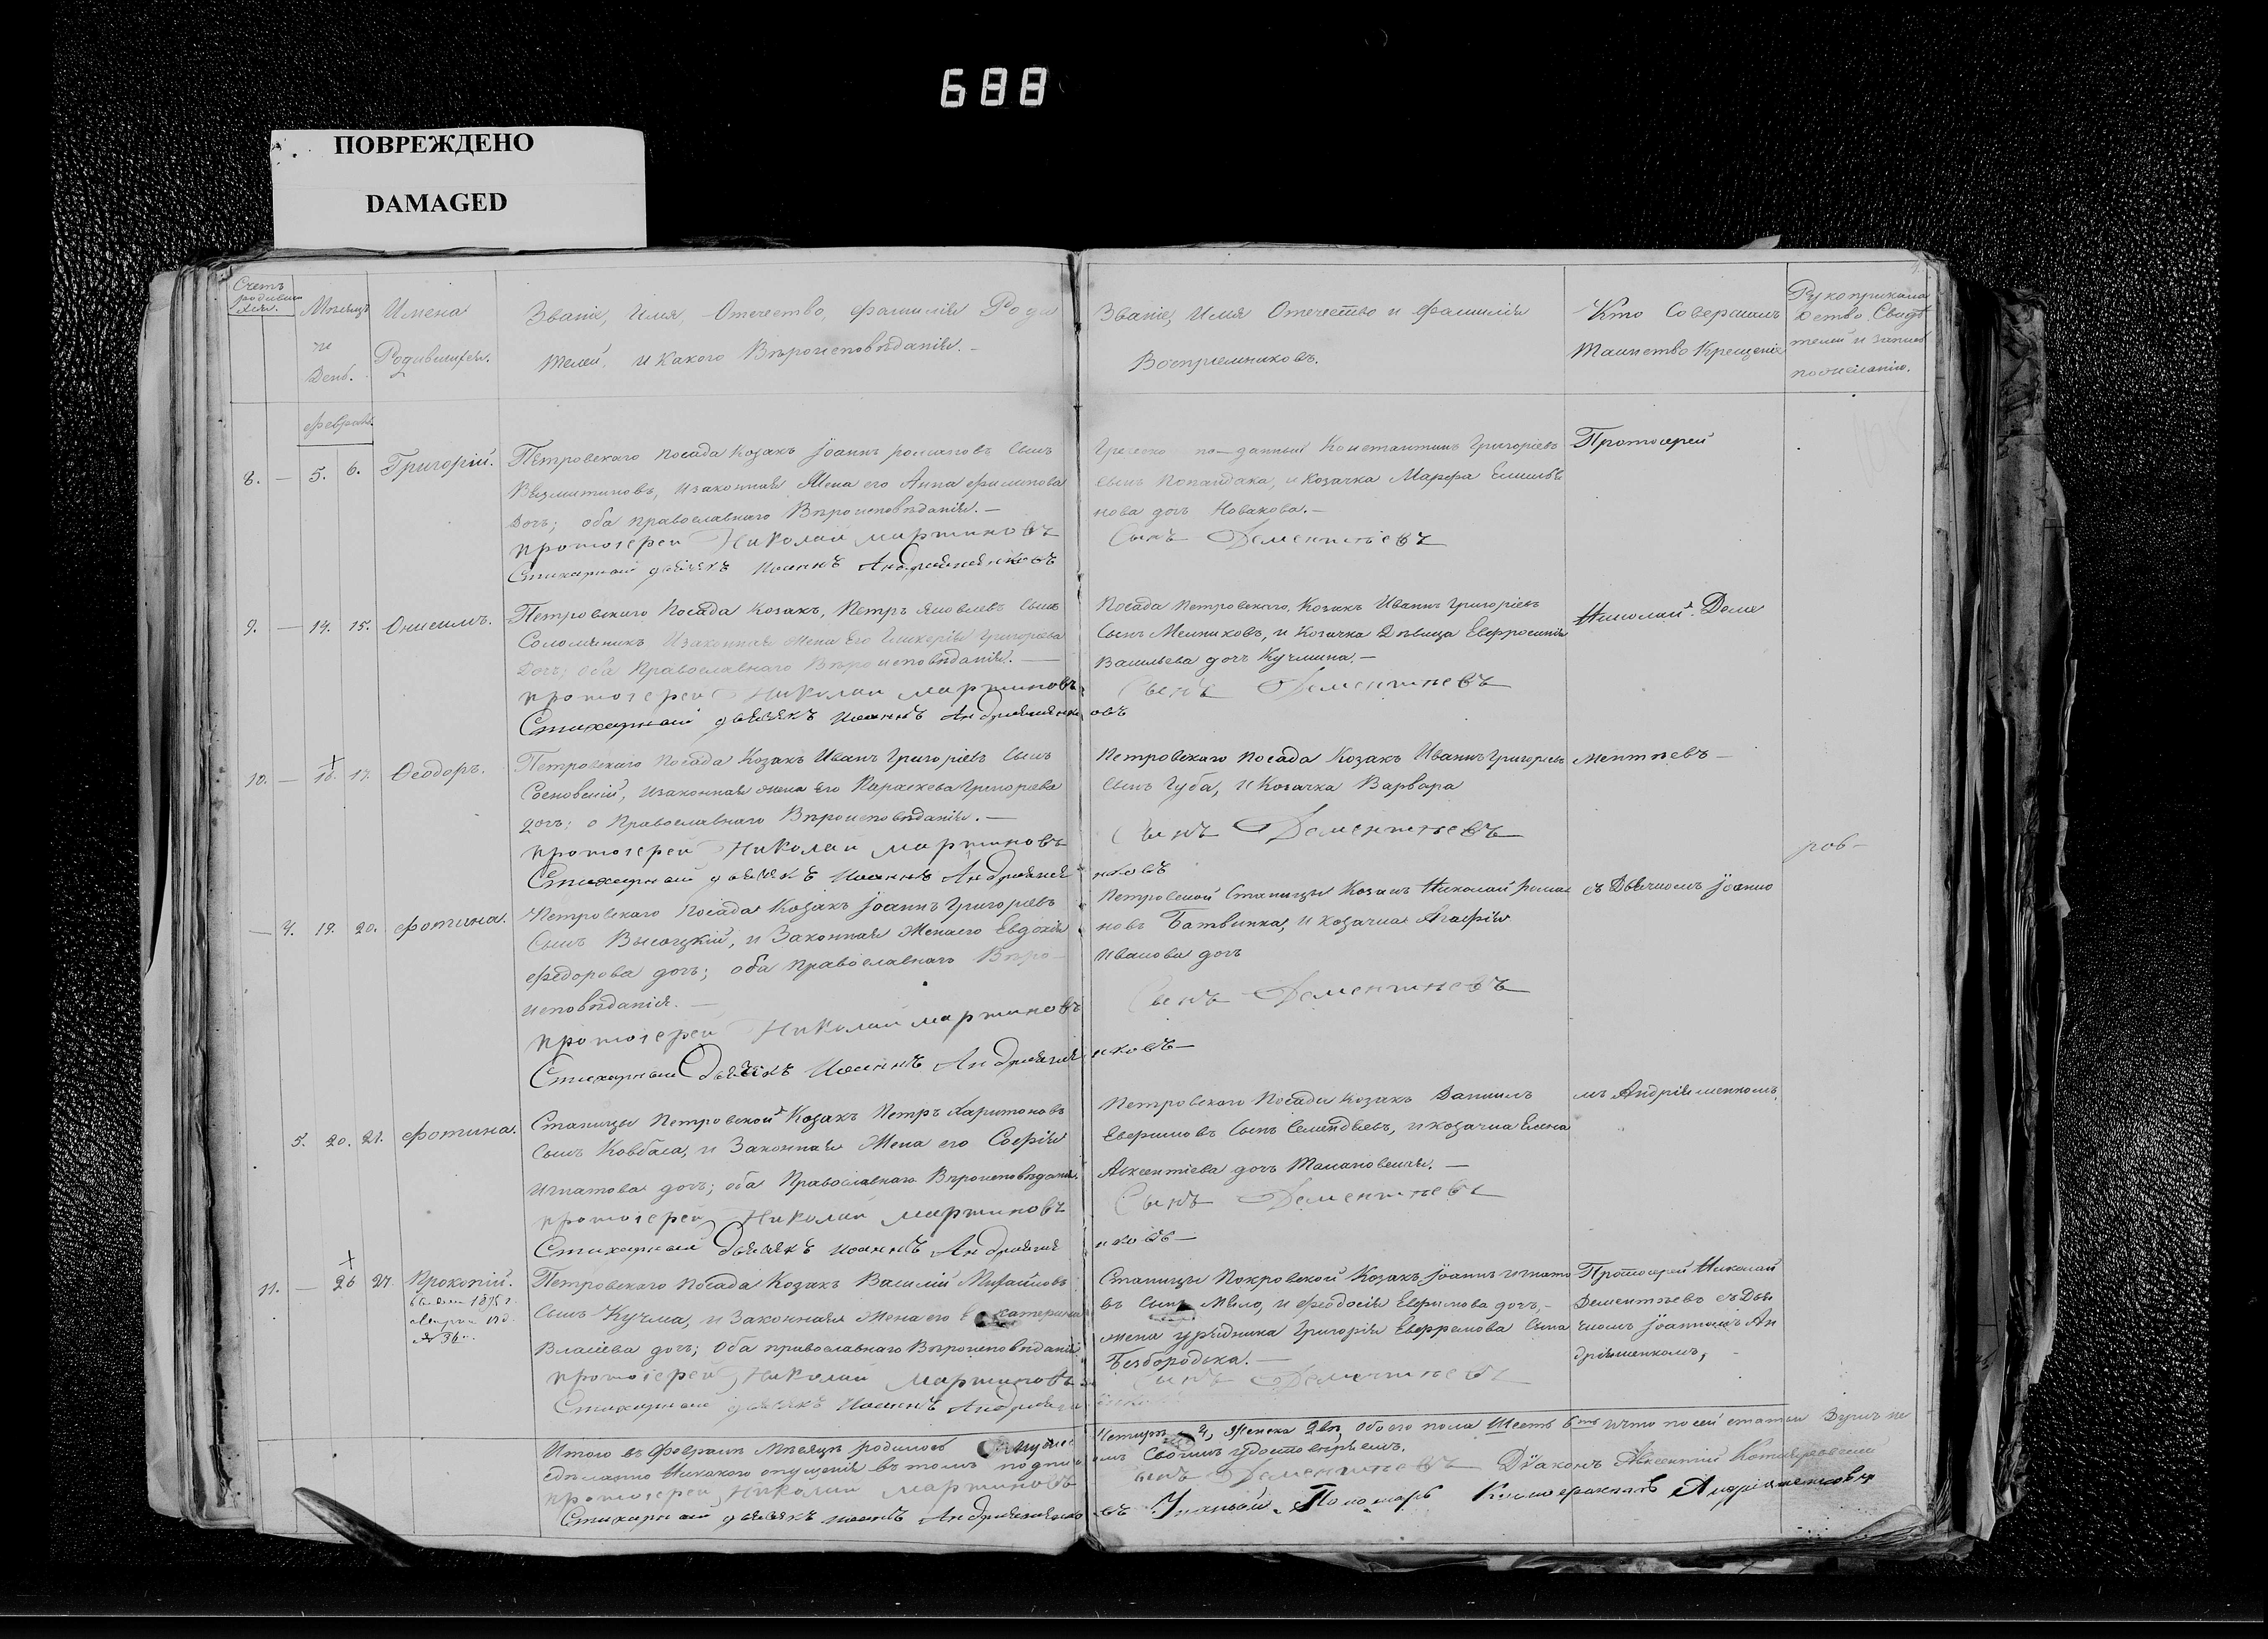 688
ПОВРЕЖДЕНО
DAMAGED
Счетъ
родивши
хся.
Мѣсяцъ
и
День.
Имена
Родившихся.
Званіе, Имя, Отечество, фамилія Роди
телей, и какого Вѣроисповѣданія.
Званіе, Имя Отечество и Фамилія
Воспріемниковъ.
Кто Совершалъ
Таинство Крещенія
Рукоприклад
ство Свидѣ
телей и записи
по желанію.
февраль.
8. — 5. 6. Григорій.
Петровскаго посада Козакъ Іоаннъ романовъ Сынъ
изаконная Жена его Анна филипова
Дочъ; оба православнаго Вѣроисповѣданія. —
протоіерей Николай мартиновъ
Стихарный дьячекъ Иоаннъ Андріяшенковъ
подданный Константинъ Григоріевъ
сынъ Попандака, и Козачка Марфа Емилья
нова дочъ Новакова. —
Сынъ Дементьевъ
Протоіерей
9. — 14. 15. Онисимъ.
Петровскаго Посада Козакъ, Петръ Яковлевъ Сынъ
Соломяникъ Изаконная жена Его Гликерія Григорьева
Дочъ; оба Православнаго Вѣроисповѣданія. —
протоіерей Николай мартиновъ
Стихарный дьячекъ Иоаннъ Андріяшенк овъ
Посада Петровскаго, Козакъ Иванъ Григоріевъ
Сынъ Мелниковъ, и Козачка Дѣвица Евфросинія
Васильева дочъ Кучмина. —
Сынъ Дементьевъ
Николай Деме
10. — 16. 17. Ѳеодоръ.
Петровскаго Посада Козакъ Иванъ Григоріевъ Сынъ
Сосновскій, изаконная жена Его Параскева Григорьева
дочъ; о Православнаго Вѣроисповѣданія. —
протоіерей Николай мартиновъ
Стихарный дьячекъ Иоаннъ Андріяше нковъ
Петровскаго посада Козакъ Иванъ Григорьевъ
Сынъ Губа, и Козачка Варвара
Сынъ Дементьевъ
ментьевъ —
— 4. 19. 20. фотина.
Петровскаго Посада Козакъ Іоаннъ Григорьевъ
Сынъ Высоцкій, и Законная Жена его Евдокія
Федорова дочъ; оба православнаго Вѣро-
исповѣданія. —
протоіерей Николай мартиновъ
Стихарный Дьячекъ Иоаннъ Андріяше нковъ —
Петровской Станицы Козакъ Николай рома
новъ Батвинка, и козачка Агафія
Иванова дочъ
Сынъ Дементьевъ
съ Дьячкомъ Іоанно
ров —
5. 20. 21. фотина.
Станицы Петровской Козакъ Петръ Харитоновъ
Сынъ Ковбаса, и Законная Жена его Софія
Игнатова дочъ; оба Православнаго Вѣроисповѣданія.
протоіерей Николай мартиновъ
Стихарный Дьячекъ иоаннъ Андріяше нковъ —
Петровскаго Посада Козакъ Даниилъ
Евфимовъ Сынъ и козачка Елена
Авксентіева дочъ —
Сынъ Дементьевъ
мъ Андріяшенкомъ,
11. — 26 27. Прокопій.
1875 г.
№ 36.
Петровскаго посада Козакъ Василій Михайловъ
Сынъ Кучма, и Законная Жена его Екатерина
Власіева дочъ; Оба православнаго Вѣроисповѣданія.
протоіерей Николай мартиновъ
Стихарный дьячекъ Иоаннъ Андріяше
Станицы Покровской Козакъ Іоаннъ Игнато
въ Сынъ Мыло, и феодосія Евфимова дочъ, —
жена урядника Григорія Евфремова Сына
Безбородька. —
Сынъ Дементьевъ
Протоіерей Николай
Дементьевъ съ Дья
чкомъ Іоанномъ Ан
дріяшенкомъ,
Итого въ Февралѣ Мѣсяцѣ родилось Мужес
Четыре 4, Женска Два, обоего пола Шесть 6ть и что по сей статьи
сдѣланно Никакого опущенія въ томъ подпис
омъ Своимъ удостовѣряемъ.
протоіерей Николай мартиновъ
Сынъ Дементьевъ Діаконъ Авксентій
Стихарный дьячекъ иоаннъ Андріяшенко въ Пономарь Андріяшенковъ